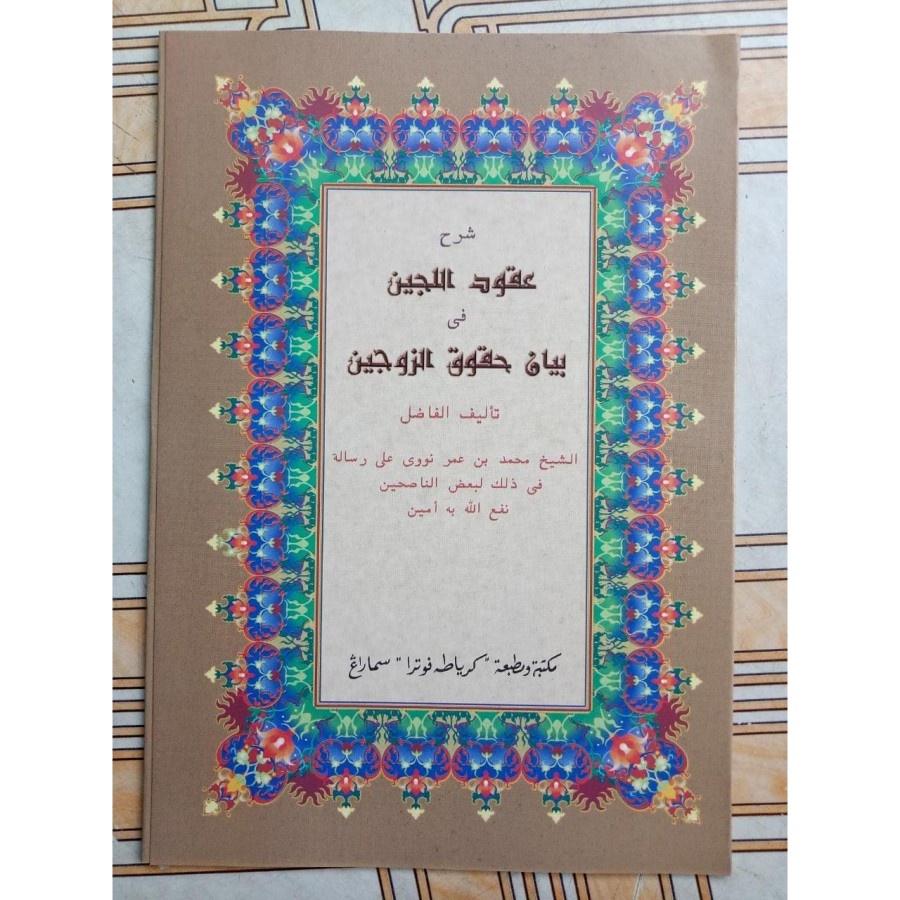 شرح
عقود اللجين
فى
بيان حقوق الزوجين
تأليف الفاضل
الشيخ محمد بن عمر نووى على رسالة
فى ذلك لبعض الناصحين
نفع الله به أمين
مكتبة ومطبعة "كرياطه فوترا" سماراڠ